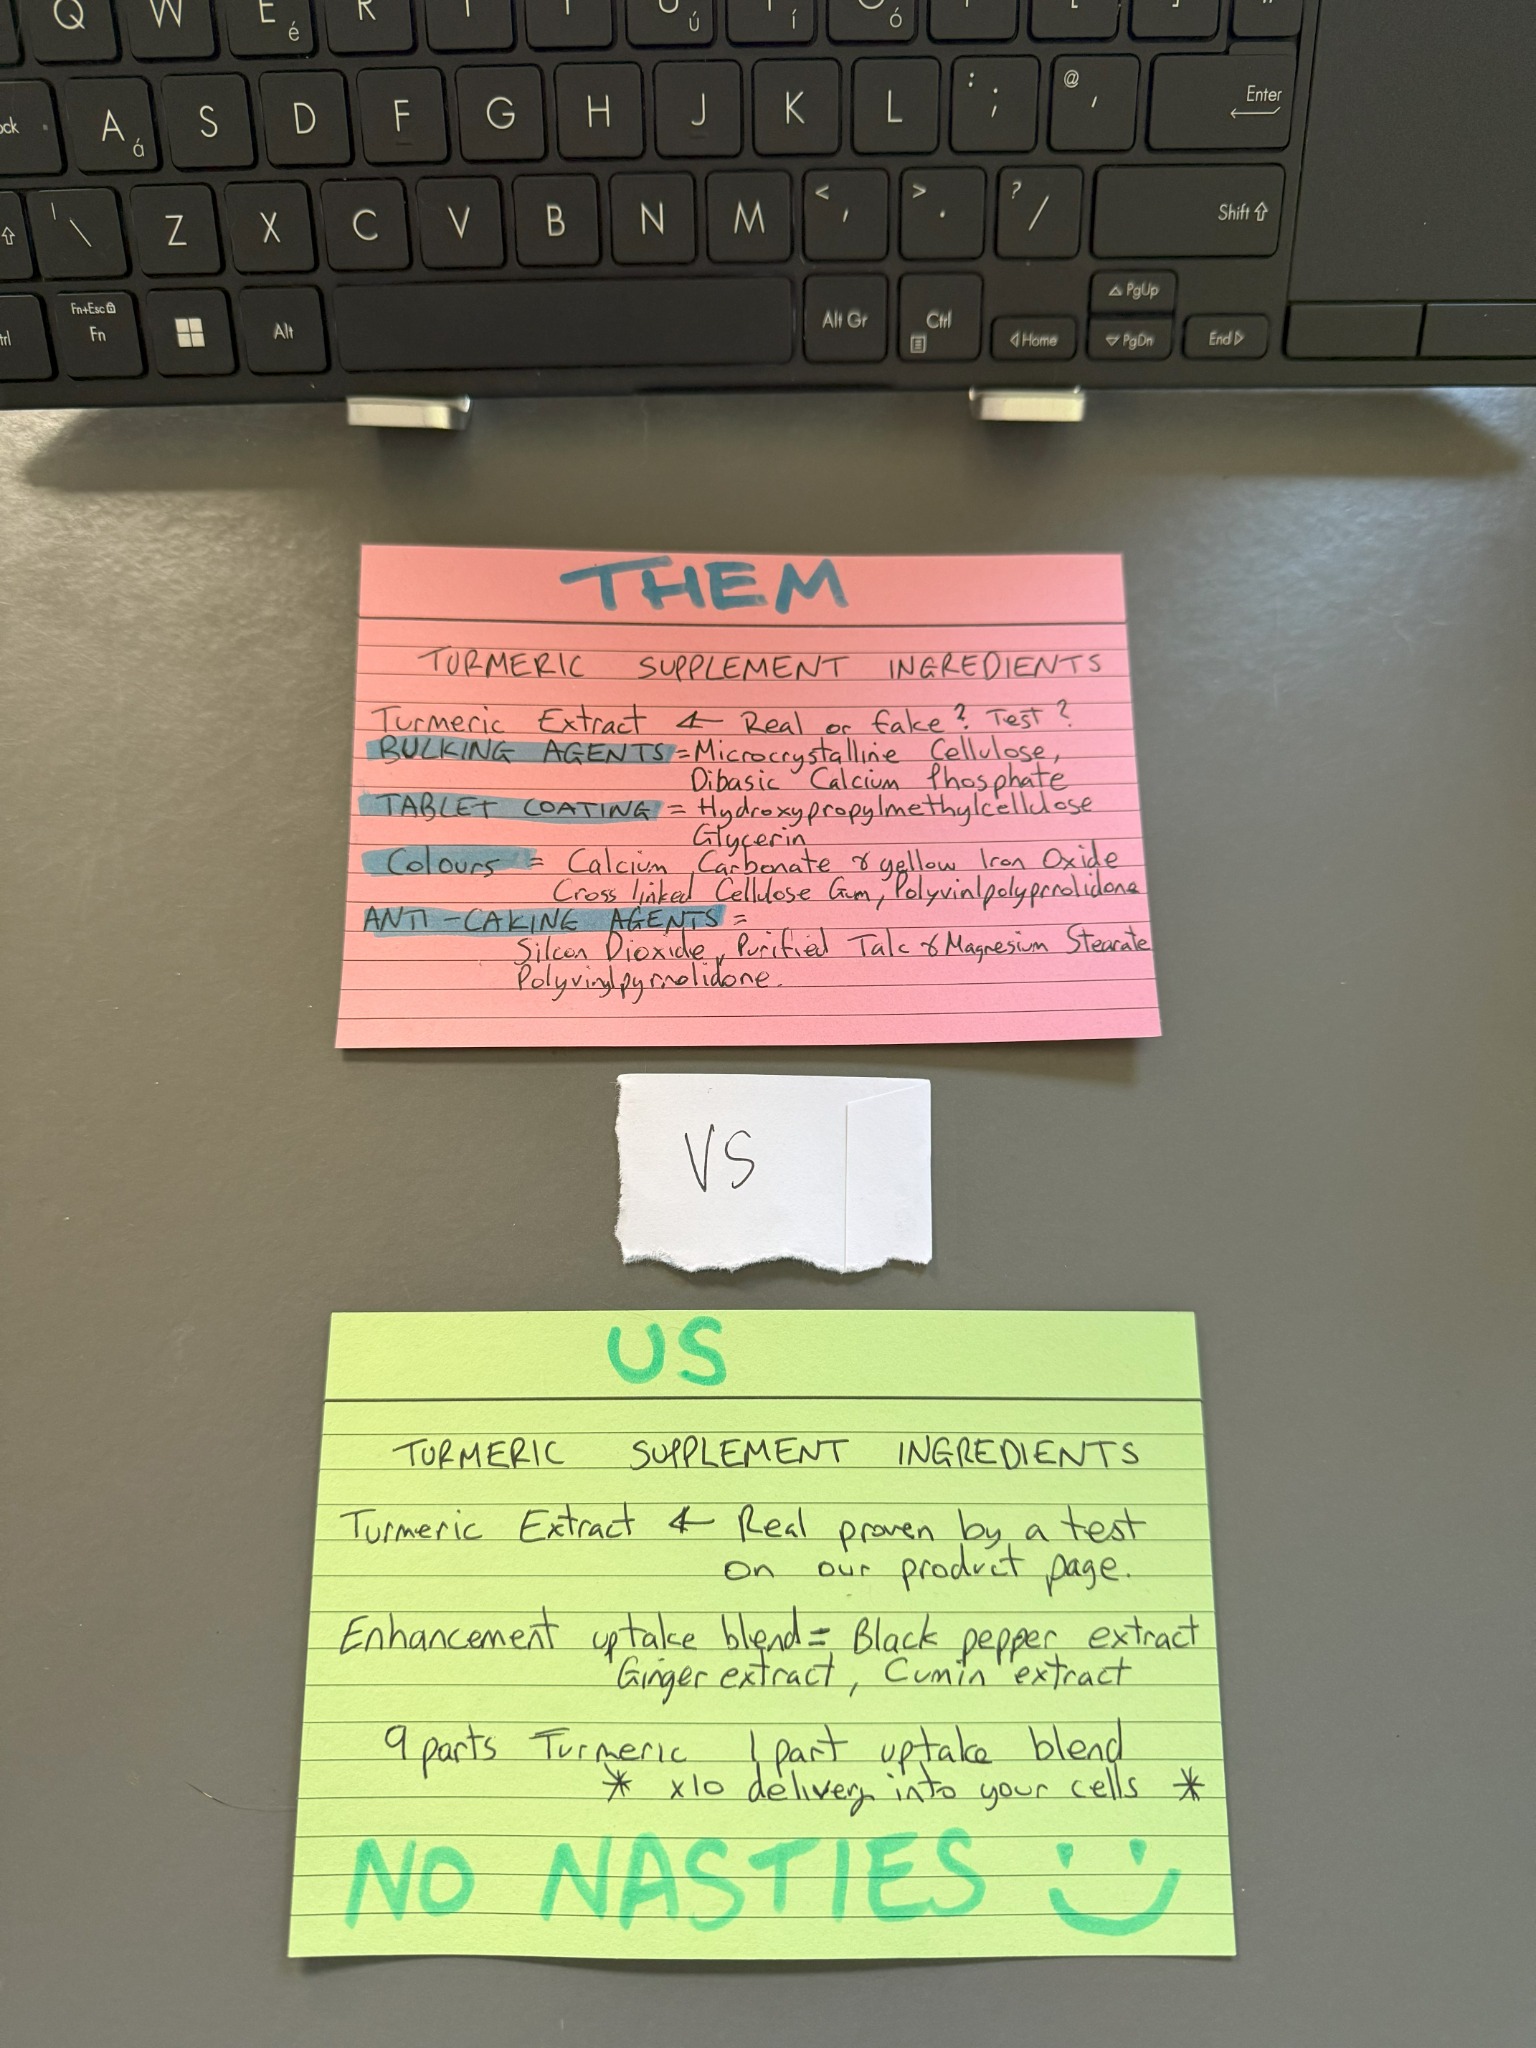 Q W E é R T Y U ú I í O ó P [ ]
ock A á S D F G H J K L : ; @ ' Enter
| \ Z X C V B N M < , > . ? / Shift
trl Fn+Esc Fn Alt Alt Gr Ctrl Home PgUp PgDn End
THEM
TURMERIC SUPPLEMENT INGREDIENTS
Turmeric Extract ← Real or fake? Test?
BULKING AGENTS = Microcrystalline Cellulose,
Dibasic Calcium Phosphate
TABLET COATING = Hydroxypropylmethylcellulose
Glycerin
Colours = Calcium Carbonate & yellow Iron Oxide
Cross linked Cellulose Gum, Polyvinlpolyprrolidone
ANTI-CAKING AGENTS =
Silcon Dioxide, Purified Talc & Magnesium Stearate
Polyvinylpyrrolidone.
VS
US
TURMERIC SUPPLEMENT INGREDIENTS
Turmeric Extract ← Real proven by a test
on our product page.
Enhancement uptake blend = Black pepper extract
Ginger extract, Cumin extract
9 parts Turmeric 1 part uptake blend
* x10 delivery into your cells *
NO NASTIES